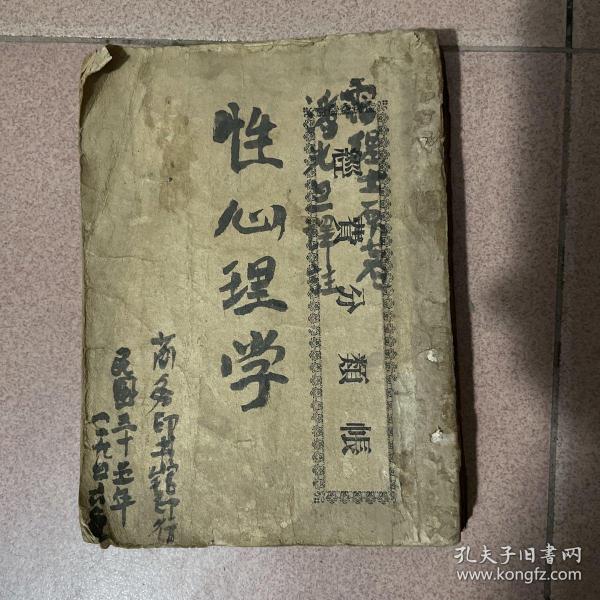 霭理士原著
潘光旦译注
性心理学
商务印书馆印行
民国三十五年
(一九四六年
費分類帳
孔夫子旧书网
www.kongfz.com